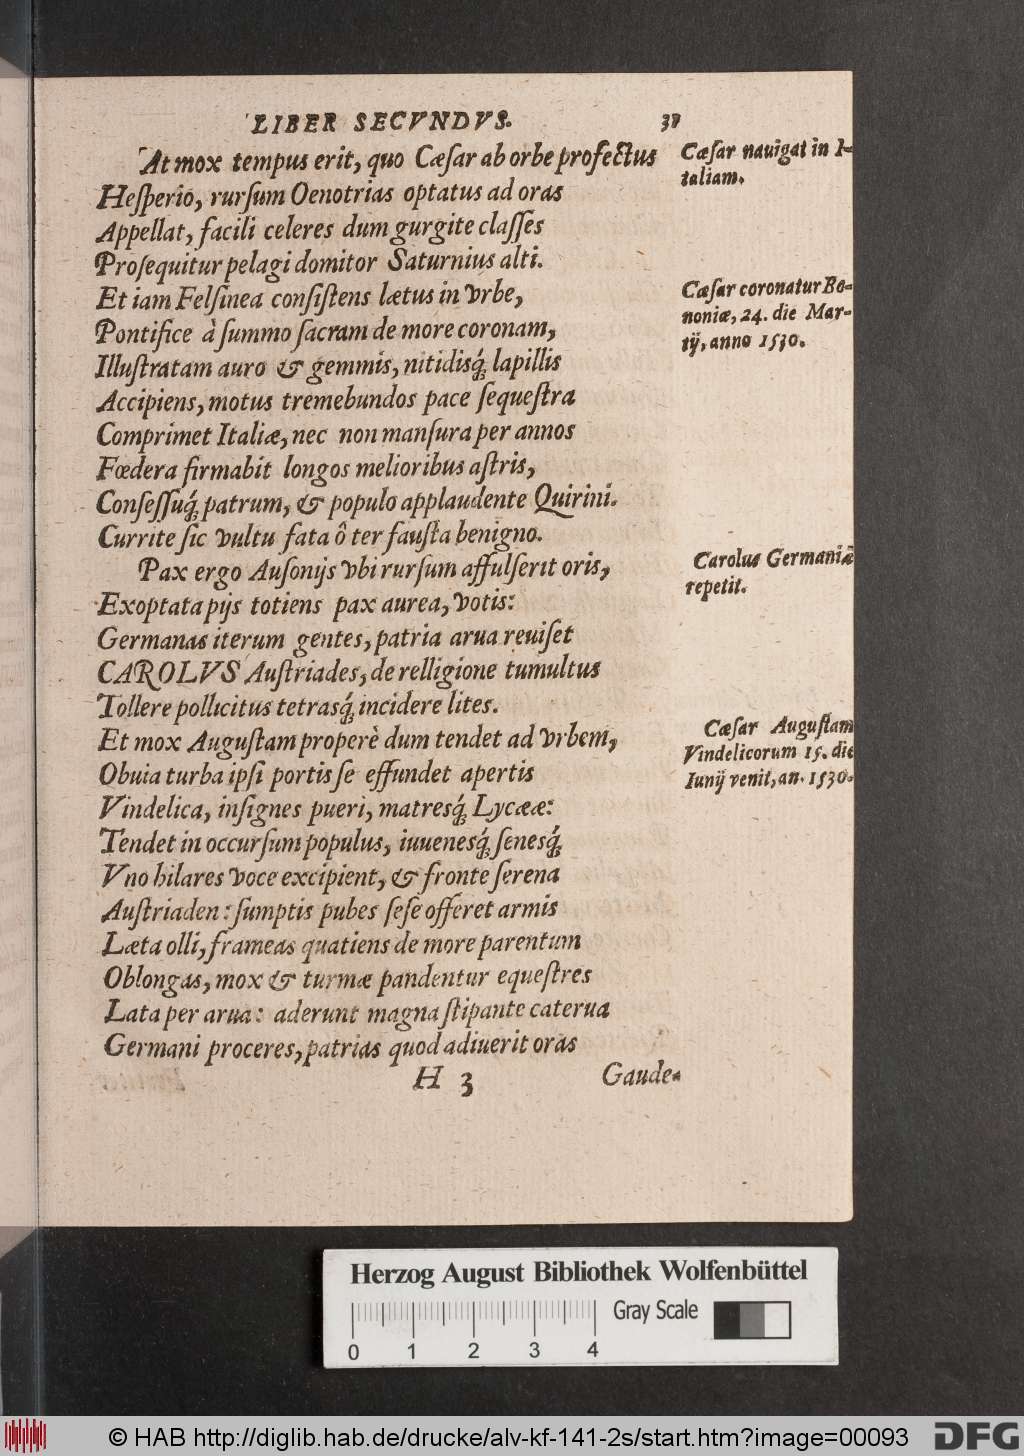 LIBER SECVNDVS. 31
At mox tempus erit, quo Cæſar ab orbe profectus
Heſperio, rurſum Oenotrias optatus ad oras
Appellat, facili celeres dum gurgite claſſes
Proſequitur pelagi domitor Saturnius alti.
Et iam Felſinea conſiſtens lætus in vrbe,
Pontifice à ſummo ſacram de more coronam,
Illuſtratam auro & gemmis, nitidisq́; lapillis
Accipiens, motus tremebundos pace ſequeſtra
Comprimet Italiæ, nec non manſura per annos
Fœdera firmabit longos melioribus aſtris,
Conſeſſuq́; patrum, & populo applaudente Quirini.
Currite ſic vultu fata ô ter fauſta benigno.
Pax ergo Auſonijs vbi rurſum affulſerit oris,
Exoptata pijs totiens pax aurea, votis:
Germanas iterum gentes, patria arua reuiſet
CAROLVS Auſtriades, de relligione tumultus
Tollere pollicitus tetrasq́; incidere lites.
Et mox Auguſtam properè dum tendet ad vrbem,
Obuia turba ipſi portis ſe effundet apertis
Vindelica, inſignes pueri, matresq́; Lycææ:
Tendet in occurſum populus, iuuenesq́; ſenesq́;
Vno hilares voce excipient, & fronte ſerena
Auſtriaden: ſumptis pubes ſeſe offeret armis
Læta olli, frameas quatiens de more parentum
Oblongas, mox & turmæ pandentur equeſtres
Lata per arua: aderunt magna ſtipante caterua
Germani proceres, patrias quod adiuerit oras
H 3 Gaude-
Cæſar nauigat in I-
taliam.
Cæſar coronatur Bo-
noniæ, 24. die Mar-
tij, anno 1530.
Carolus Germaniā
repetit.
Cæſar Auguſtam
Vindelicorum 15. die
Iunij venit, an. 1530.
Herzog August Bibliothek Wolfenbüttel
Gray Scale
0 1 2 3 4
© HAB http://diglib.hab.de/drucke/alv-kf-141-2s/start.htm?image=00093
DFG